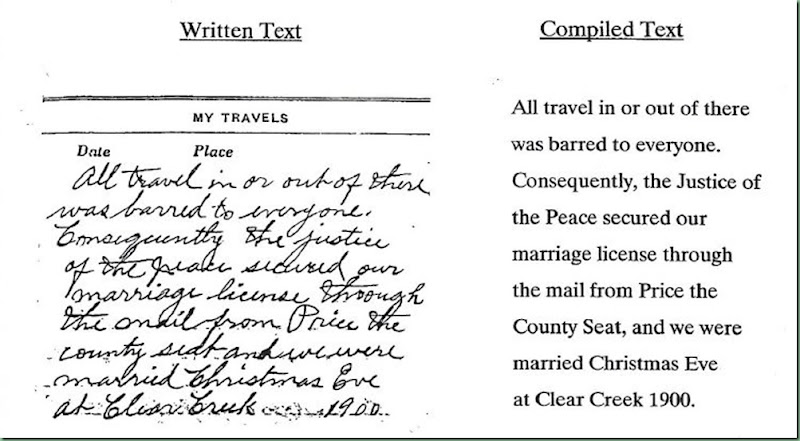 Written Text
MY TRAVELS
Date Place
All travel in or out of there
was barred to everyone.
Consequently the justice
of the peace secured our
marriage license through
the mail from Price the
county seat and we were
married Christmas Eve
at Clear Creek 1900
Compiled Text
All travel in or out of there
was barred to everyone.
Consequently, the Justice of
the Peace secured our
marriage license through
the mail from Price the
County Seat, and we were
married Christmas Eve
at Clear Creek 1900.